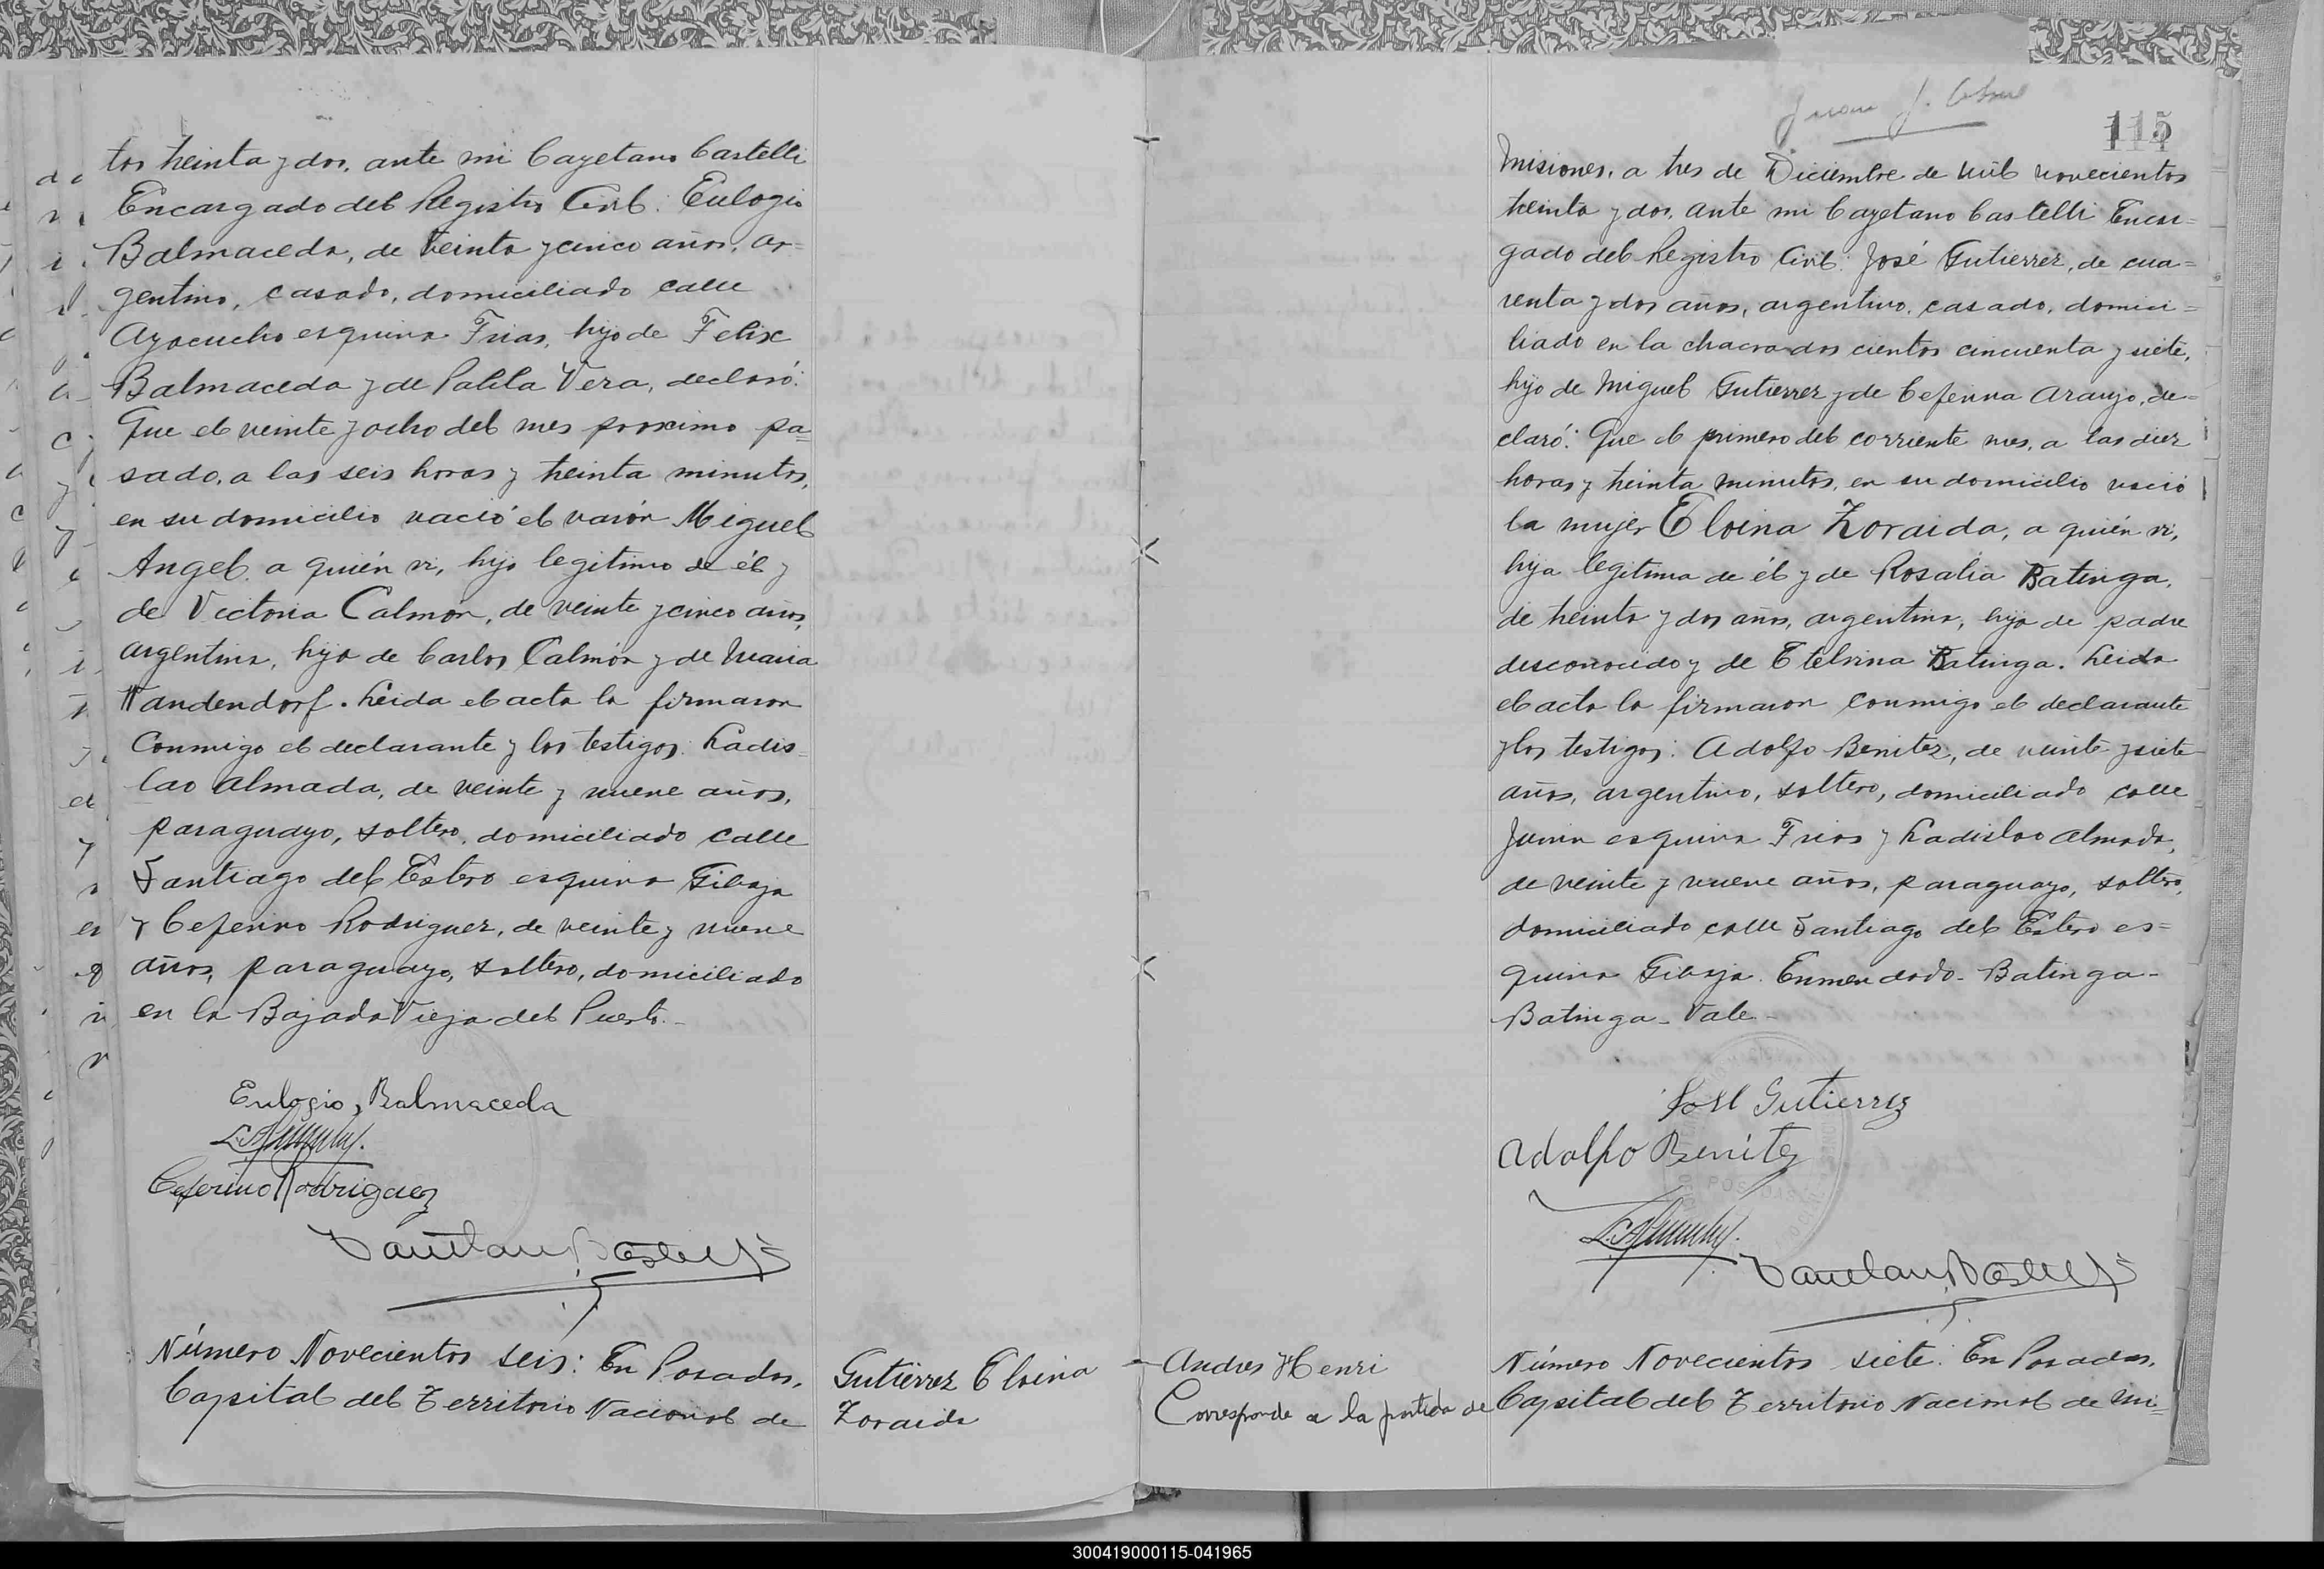 tos treinta y dos, ante mi Cayetano Castelli
Encargado del Registro Civil: Eulogio
Balmaceda, de treinta y cinco años, ar=
gentino, casado, domiciliado calle
Ayacucho esquina Frias, hijo de Felix
Balmaceda y de Vera, declaró:
Que el veinte y ocho del mes proximo pa=
sado, a las seis horas y treinta minutos,
en su domicilio nació el varón Miguel
Angel, a quién vi, hijo legitimo de él y
de Victoria Calmón, de veinte y cinco años,
argentina, hija de Carlos Calmón y de Maria
Wandendorf. Leida el acta la firmaron
conmigo el declarante y los testigos: Ladis-
lao Almada, de veinte y nueve años,
paraguayo, soltero, domiciliado calle
Santiago del Estero esquina Gibaja
y Ceferino Rodriguez, de veinte y nueve
años, paraguayo, soltero, domiciliado
en la Bajada Vieja del Puerto.-
Eulogio Balmaceda
Ceferino Rodriguez
Número Novecientos seis: En Posadas,
Capital del Territorio Nacional de
Gutiérrez Eloina
Zoraida
115
Misiones, a tres de Diciembre de mil novecientos
treinta y dos, ante mi Cayetano Castelli Encar=
gado del Registro Civil: José Gutierrez, de cua=
renta y dos años, argentino, casado, domici=
liado en la chacra dos cientos cincuenta y siete,
hijo de Miguel Gutierrez y de Ceferina Araujo, de=
claró: Que el primero del corriente mes, a las diez
horas y treinta minutos, en su domicilio nació
la mujer Eloina Zoraida, a quién vi,
hija legitima de él y de Rosalia Batinga,
de treinta y dos años, argentina, hija de padre
desconocido y de Etelvina Batinga. Leida
el acta la firmaron conmigo el declarante
y los testigos: Adolfo Benitez, de veinte y siete
años, argentino, soltero, domiciliado calle
Junin esquina Frias y Ladislao Almada,
de veinte y nueve años, paraguayo, soltero,
domiciliado calle Santiago del Estero es=
quina Gibaja. Enmendado - Batinga -
Batinga - Vale -
José Gutierrez
Adolfo Benitez
Andres Henri
Corresponde a la partida de
Número Novecientos siete: En Posadas,
Capital del Territorio Nacional de Mi=
300419000115-041965